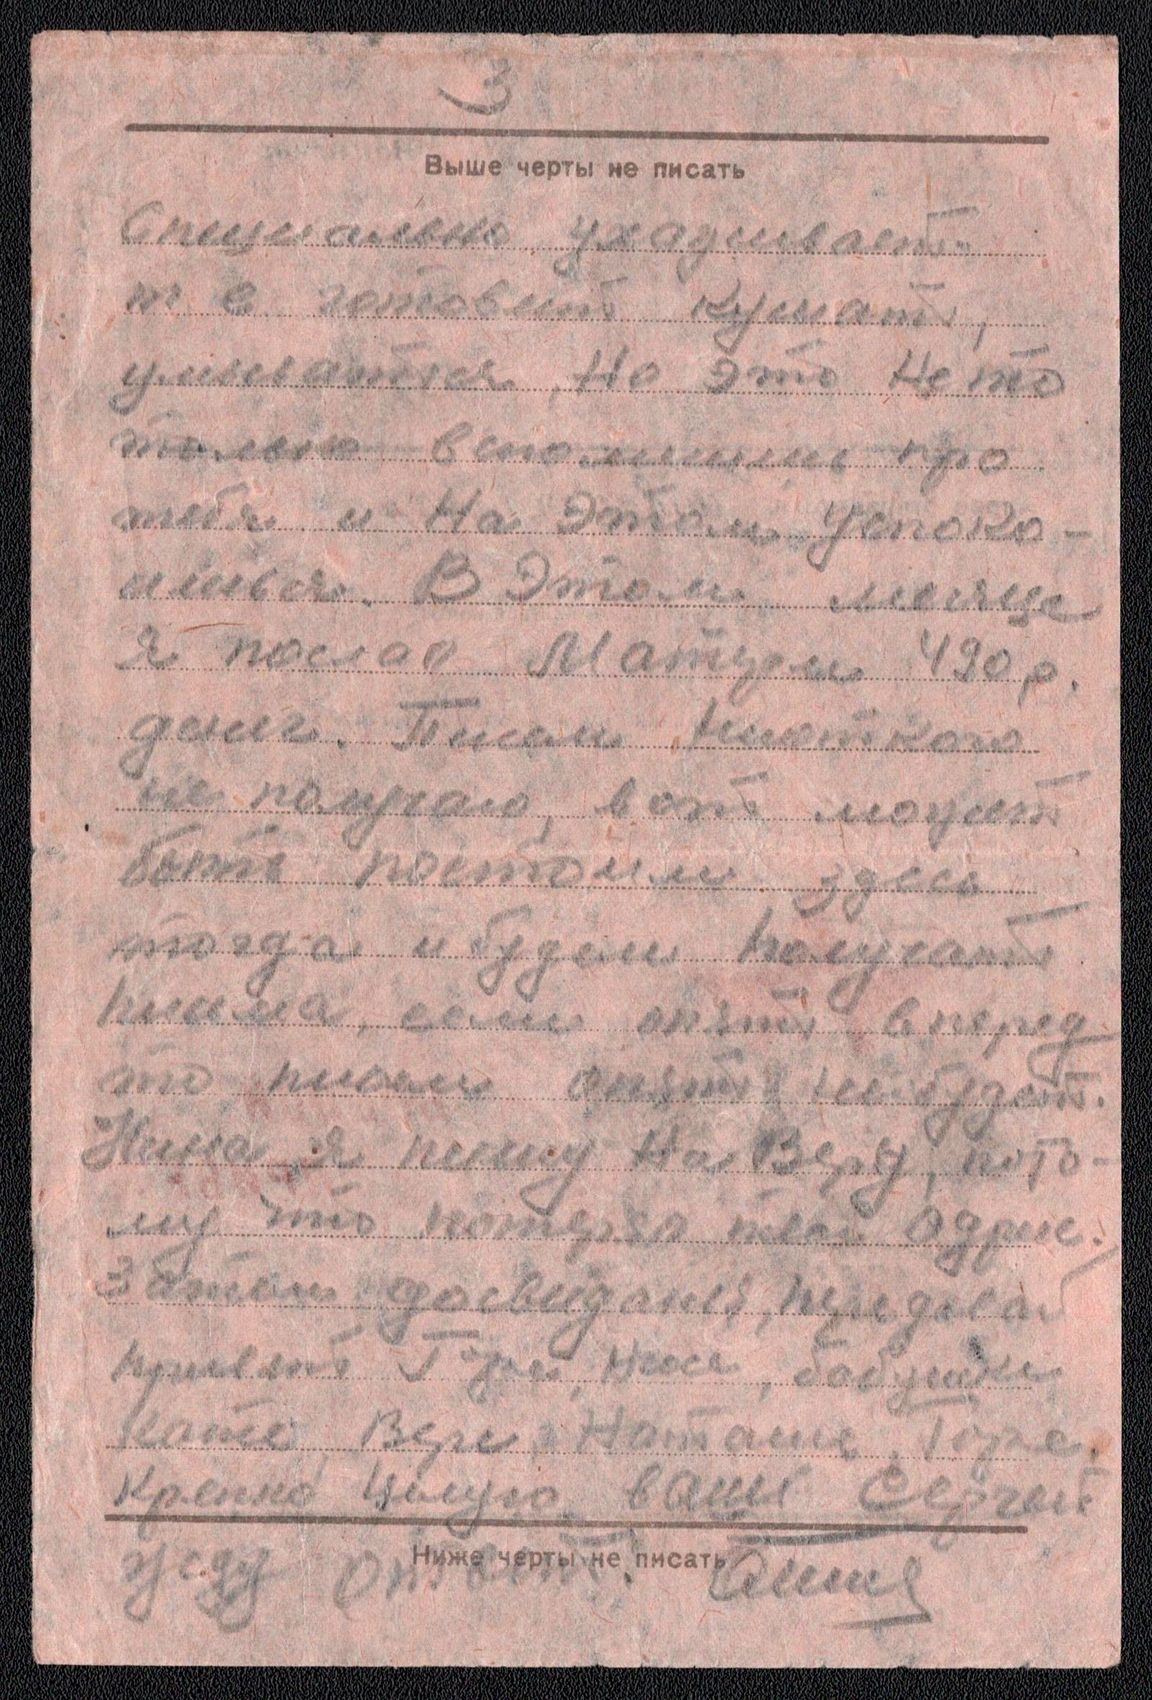 3
Выше черты не писать
Специально ухадживает
т е готовит кушать,
умываться. Но это не то
только вспомнишь про
тебя и на этом успоко-
ишься. В этом месяце
я послал Матери 490 р.
денег. Писем ниоткого
не получаю, вот может
быть постоим здесь
тогда и будем получать
письма, если опять вперед
то писем опять не будет.
Нина я пишу на Веру, пото-
му что потерял твой адрес.
Затем досвидания, передавай
привет Гуре, Нюсе, бабушке
Кате, Вере, Наташе, Гуре.
Крепко целую ваш Сергей
Ниже черты не писать
жду ответ.